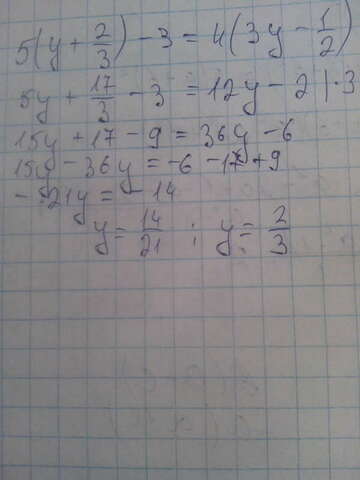 5(y + 2/3) - 3 = 4(3y - 1/2)
5y + 17/3 - 3 = 12y - 2 | · 3
15y + 17 - 9 = 36y - 6
15y - 36y = -6 - 17 + 9
- 21y = - 14
y = 14/21 ; y = 2/3